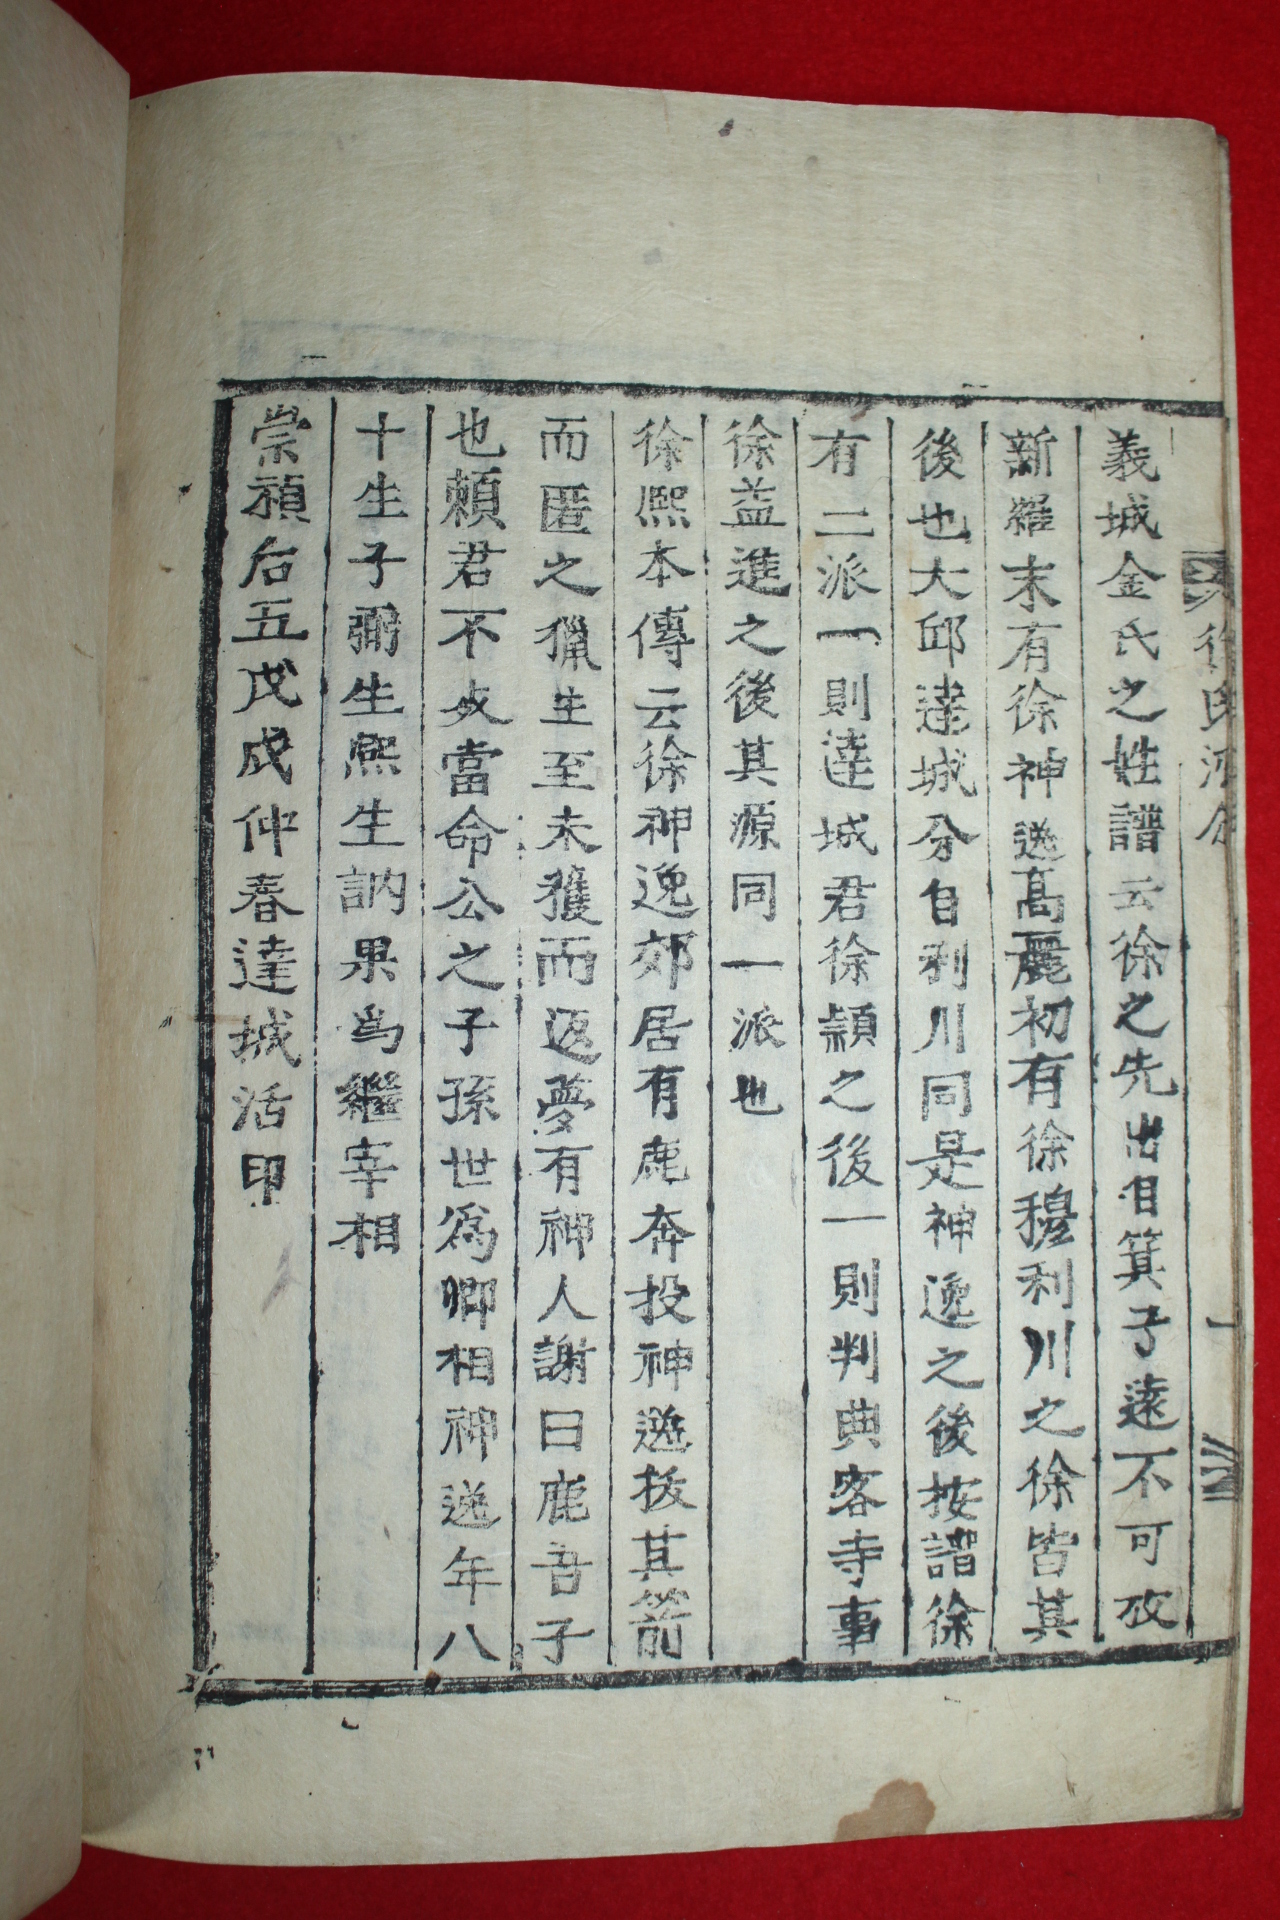 義城金氏之姓譜云徐之先出自箕子遠不可攷
新羅末有徐神逸高麗初有徐穆利川之徐皆其
後也大邱達城分自利川同是神逸之後按譜徐
有二派一則達城君徐穎之後一則判典客寺事
徐益進之後其源同一派也
徐熙本傳云徐神逸郊居有鹿奔投神逸拔其箭
而匿之獵生至未獲而返夢有神人謝曰鹿吾子
也賴君不死當命公之子孫世爲卿相神逸年八
十生子弼生熙生訥果爲繼宰相
崇禎后五戊戌仲春達城活印
徐氏
一